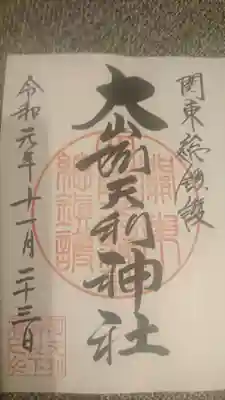 関東総鎮護
大山阿夫利神社
令和元年十一月二十三日